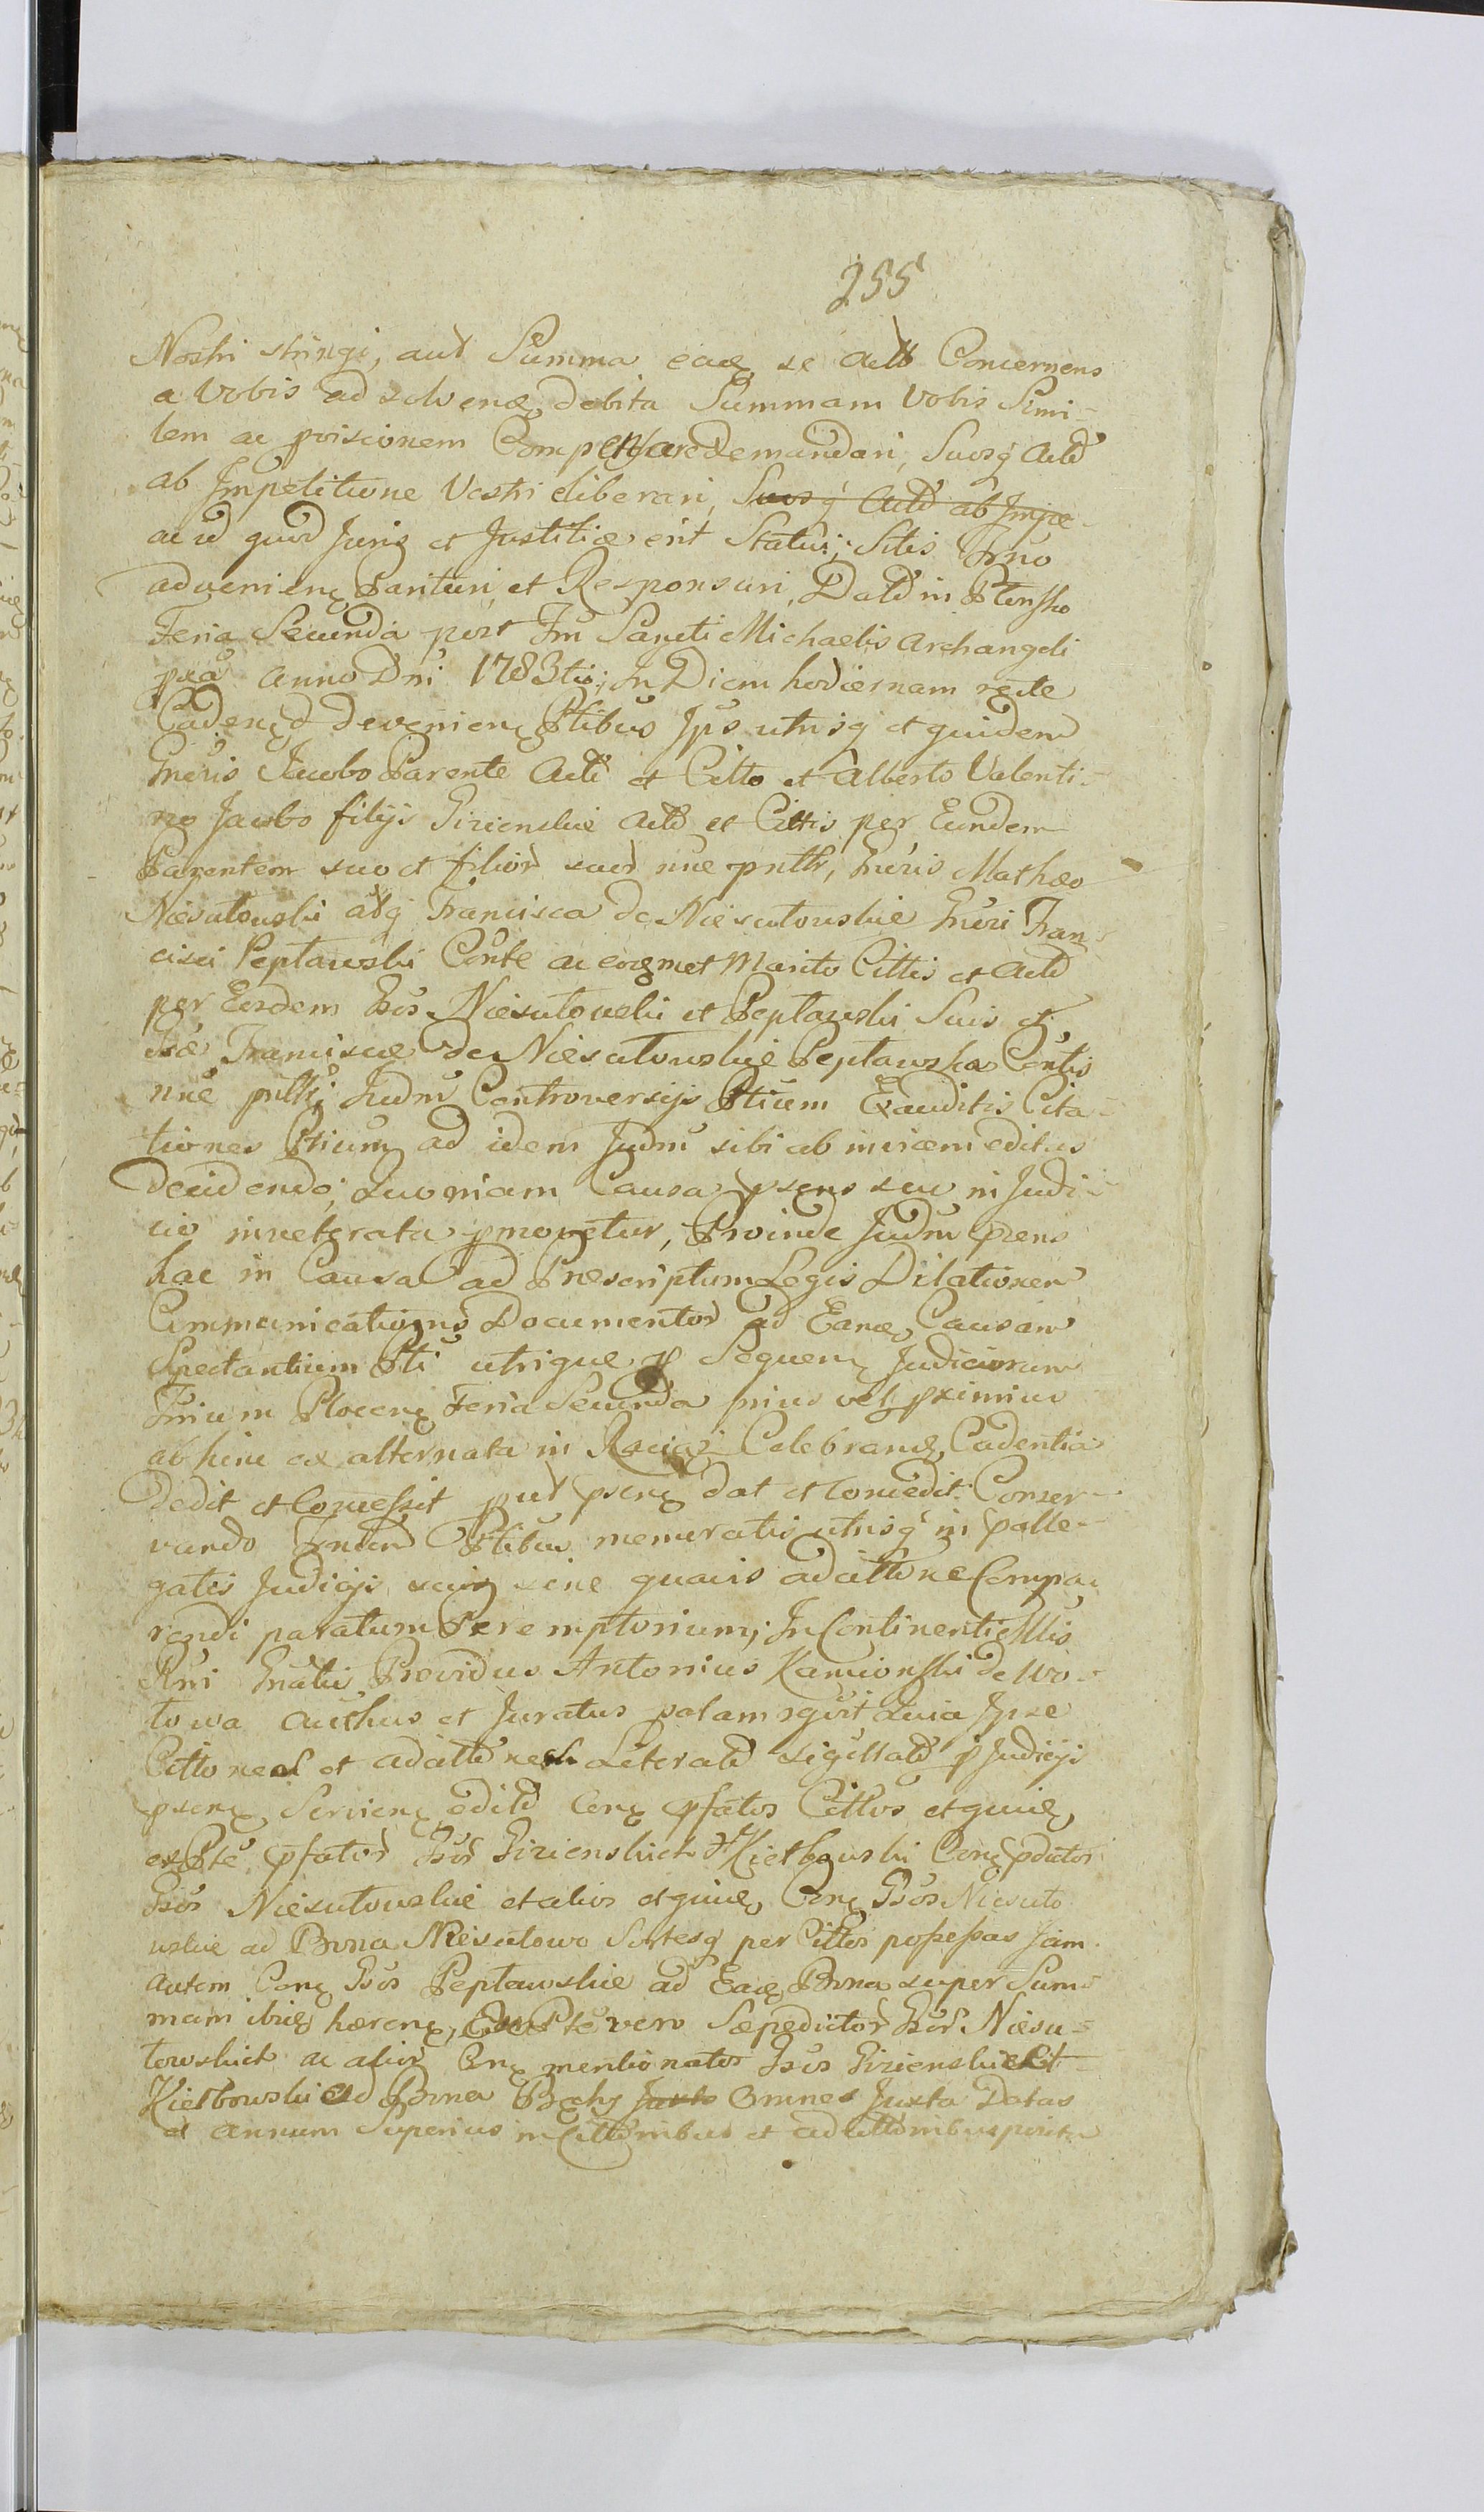 255
Nostri stringi, aut Summa eadę se Actb Concernens
a Vobis ad solvenđ debita Summam Vobis Simi-
lem ac poiscionem Compensare demandari, Suosq Actđ
ab Impetitione Vestri eliberari, Suosq Actđ ab Impe-
ac id quod Juris et Justitiæ erit Statui; Sitis Trno
advenienę Parituri et Responsuri, Datđ in Płonsko
Feria Secunda post Fm Sancti Michaelis Archangeli
pxa Anno Dni 1783tio; In Diem hodiernam recte
Cadenę devenienę Ptibus Ips utrisq et quidem
Gneris Jacobo Parente Actđ et Citto et Alberto Valenti-
no Jacobo filijs Girienskie Actđ et Cittis per Eundem
Parentem suo et filior suor nne pntbs, Gneris Mathæo
Niesutowski atq Francisca de Niesutowskie Gneri Fran-
cisci Peptawski Conte ac eoðmet Marito Cittis et Actđ
per Eosdem Gsos Niesutowski et Peptawski Suis et
Gsæ Franciscæ de Niesutowskie Peptawska Contis
nne pntbs; Judm Controversijs Ptium Exauditis Cita-
tiones Ptium ad idem Judm sibi ab invicem editas
Decidendo; Quoniam Causa psens seu in Judi-
cio inveterata pmovetur, Proinde Judm psens
hac in Causa ad Præscriptum Legis Dilationem
Communicationis Documentor ad Eanđ Causam
Spectantium Pti utrique p Sequenę Judiciorum
Trnum Plocenę Feria Secunda prius vel pximius
ab hinc ex alternata in Racią Celebranđ Cadentia
Dedit et Concessit put psenę dat et concedit. Conser-
vando Trnum Ptibus memoratis utrisq in palle-
gatis Judicijs suis sine quavis adcittone Compa-
rendi paratum Peremptorium; In Continenti Mis
Rni Gnalis Providus Antonius Kamionski de Wo-
towa Authus et Juratus palam rgvit Quia Ipse
Cittones et adcittnes Literatđ sigillatđ p Judicijs
psenę Servienę editđ Cenę pfatos Cittos et quidę
ex Pte pfator Gsor Girienskich et Kiełbowski Cenę pdictos
Gsos Niesutowskie et alios et quidę Cenę Gsos Niesuto
wskie ad Bona Niesutowo Sortesq per Cittos possessas Jam
autem Cenę Gsos Peptawskie ad Eadę Bona super Sum-
mam ibidę hærenę, Ex Pte vero Sæpedictor Gsor Niesu-
towskich ac alior Cenę mentionatos Gsos Girienskie et
Kiełbowski ad Bona Juxto Omnes Juxta Datas
et Annum Superius in Cittonibus et adcittonibus